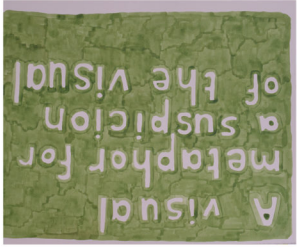 A visual
metaphor for
a suspicion
of the visual